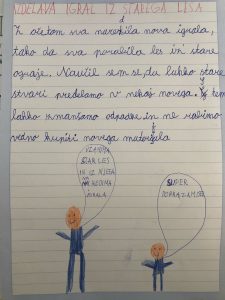 IZDELAVA IGRAL IZ STAREGA LESA
Z očetom sva naredila nova igrala,
tako da sva porabila les in stare
ograje. Naučil sem se, da lahko stare
stvari predelamo v nekaj novega. S tem
lahko zmanšamo odpadke in ne rabimo
vedno kupiti novega materijala
VZAMIVA
STAR LES
IN IZ NJEGA
NAREDIMA
IGRALA
SUPER